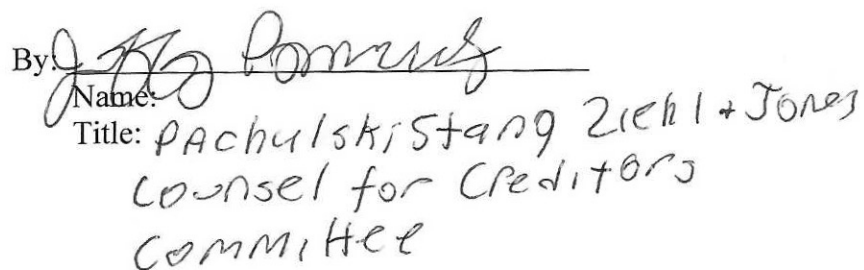 By:
Name:
Title: PAchulski Stang Ziehl + Jones
Counsel for Creditors
Committee